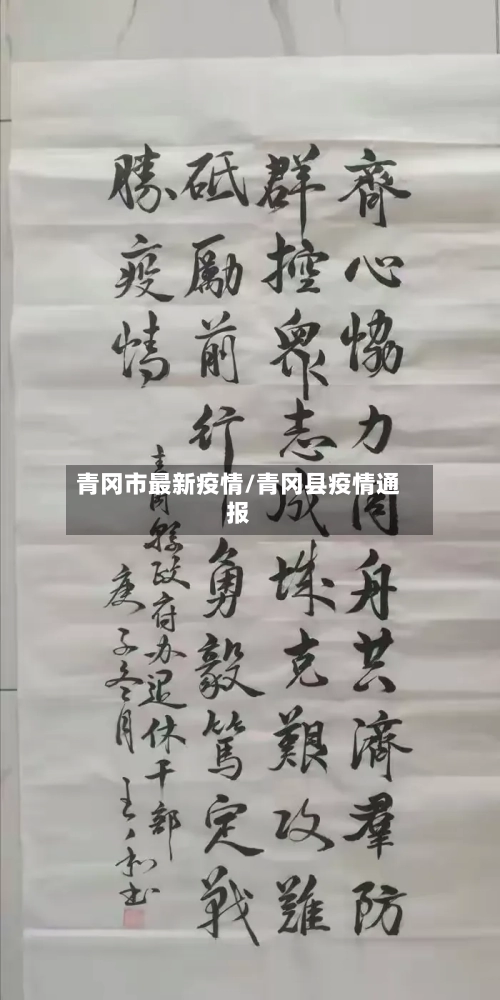 齊心協力同舟共濟羣防
群控衆志成城克艱攻難
砥勵前行 勇毅篤定戰
勝疫情
青岡縣政府办退休干部
庚子冬月 王 和书
青冈市最新疫情/青冈县疫情通
报